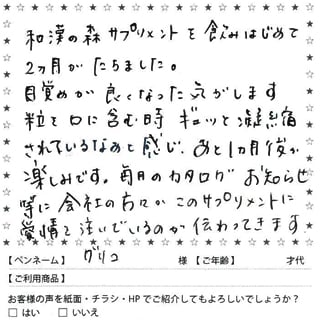 和漢の森サプリメントを飲みはじめて
2ヶ月がたちました。
目覚めが良くなった気がします
粒を口に含む時ギュッと凝縮
されているなぁと感じ、あと1ヵ月後が
楽しみです。毎月のカタログ お知らせ
等に会社の方々がこのサプリメントに
愛情を注いでいるのが伝わってきます。
【ペンネーム】 グリコ 様 【ご年齢】 才代
【ご利用商品】
お客様の声を紙面・チラシ・HPでご紹介してもよろしいでしょうか？
□ はい □ いいえ